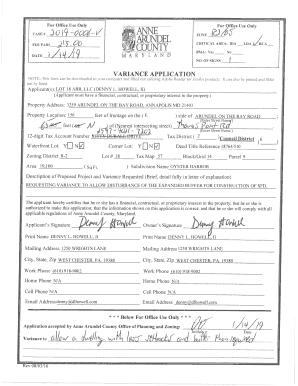 For Office Use Only
CASE # 2019-0008-V
FEE PAID
DATE 1/14/19
ANNE
ARUNDEL
COUNTY
MARYLAND
For Office Use Only
ZONE
CRITICAL AREA: IDA LDA RCA
NO. OF SIGNS
VARIANCE APPLICATION
Applicant(s): LOT 18 ABR, LLC ( DENNY L. HOWELL, II)
(Applicant must have a financial, contractual, or proprietary interest in the property)
Property Address: 3259 ARUNDEL ON THE BAY ROAD, ANNAPOLIS MD 21403
Property Location: 150 feet of frontage on the side of ARUNDEL ON THE BAY ROAD
feet N of (nearest intersecting street)
12-digit Tax Account Number Tax District 2 Council District 6
Waterfront Lot Y N Corner Lot Y N Deed Title Reference
Zoning District R-2 Lot # 18 Tax Map 57 Block/Grid 14 Parcel 9
Area (Sq Ft ) Subdivision Name OYSTER HARBOR
Description of Proposed Project and Variance Requested (Brief, detail fully in letter of explanation)
REQUESTING VARIANCE TO ALLOW DISTURBANCE OF THE EXPANDED BUFFER FOR CONSTRUCTION OF SFD.
The applicant hereby certifies that he or she has a financial, contractual, or proprietary interest in the property; that he or she is authorized to make this application; that the information shown on this application is correct; and that he or she will comply with all applicable regulations of Anne Arundel County, Maryland.
Applicant's Signature Denny Howell Owner's Signature Denny Howell
Print Name DENNY L. HOWELL, II Print Name DENNY L. HOWELL, II
Mailing Address 1250 WRIGHTS LANE Mailing Address 1250 WRIGHTS LANE
City, State, Zip WEST CHESTER, PA. 19380 City, State, Zip WEST CHESTER, PA. 19380
Work Phone (610)918-9002 Work Phone (610)918-9002
Home Phone N/A Home Phone N/A
Cell Phone N/A Cell Phone N/A
Email Address denny@dlhowell.com Email Address denny@dlhowell.com
* * * Below For Office Use Only * * *
Application accepted by Anne Arundel County Office of Planning and Zoning: 1/14/19
Variance to allow a dwelling with less setbacks and buffer than required